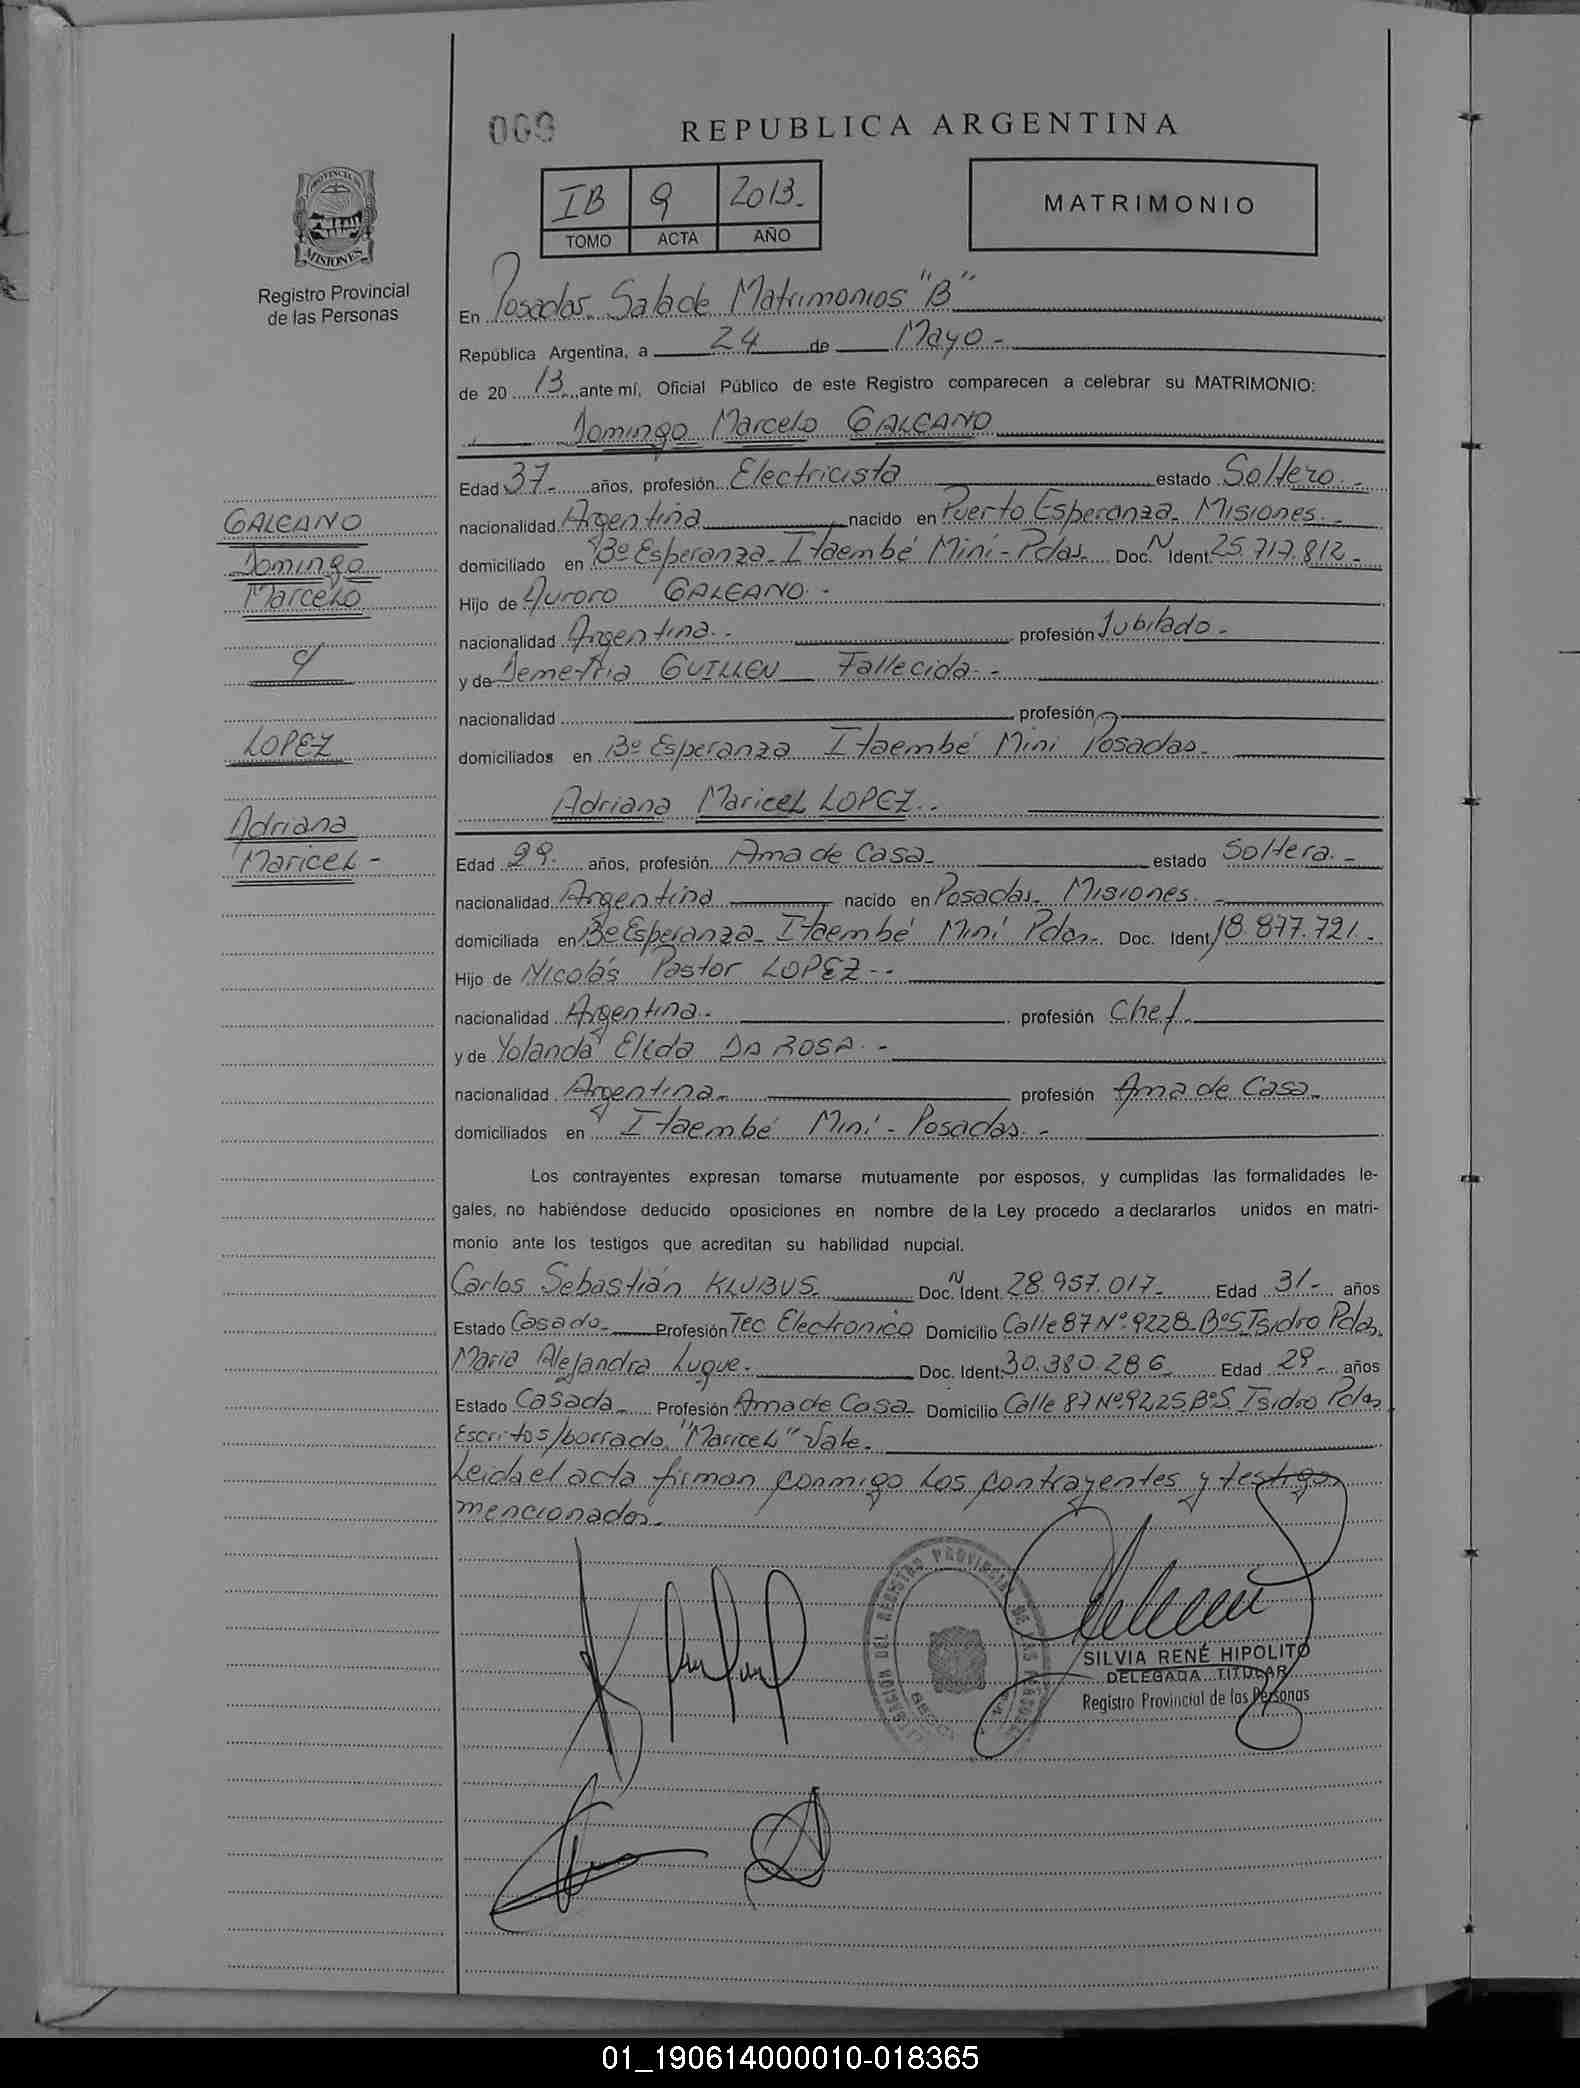 009
REPUBLICA ARGENTINA
IB 9 2013.
TOMO ACTA AÑO
MATRIMONIO
PROVINCIA
MISIONES
Registro Provincial
de las Personas
En Posadas. Sala de Matrimonios "B"
República Argentina, a 24 de Mayo -
de 20 13 ante mí, Oficial Público de este Registro comparecen a celebrar su MATRIMONIO:
Domingo Marcelo GALEANO
Edad 37- años, profesión Electricista estado Soltero.-
nacionalidad Argentina nacido en Puerto Esperanza- Misiones.-
domiciliado en Bº Esperanza- Itaembé Miní- Pdas- Doc. N Ident. 25.717.812-
Hijo de Auroro GALEANO.-
nacionalidad Argentina.- profesión Jubilado-
y de Demetria GUILLEN Fallecida.-
nacionalidad profesión
domiciliados en Bº Esperanza Itaembé Miní Posadas-
Adriana Maricel LOPEZ..
Edad 29. años, profesión Ama de Casa- estado Soltera.-
nacionalidad Argentina nacido en Posadas- Misiones.-
domiciliada en Bº Esperanza- Itaembé Miní Pdas- Doc. Ident. 18.877.721.-
Hijo de Nicolás Pastor LOPEZ--
nacionalidad Argentina.- profesión Chef.
y de Yolanda Elida DA ROSA.-
nacionalidad Argentina- profesión Ama de Casa-
domiciliados en Itaembé Miní- Posadas.-
Los contrayentes expresan tomarse mutuamente por esposos, y cumplidas las formalidades le-
gales, no habiéndose deducido oposiciones en nombre de la Ley procedo a declararlos unidos en matri-
monio ante los testigos que acreditan su habilidad nupcial.
Carlos Sebastián KLUBUS- Doc. N Ident. 28.957.017- Edad 31- años
Estado Casado- Profesión Tec Electronico Domicilio Calle 87 Nº 9228-BºS.Isidro Pdas.
Maria Alejandra Luque- Doc. Ident. 30.380.286- Edad 29- años
Estado Casada- Profesión Ama de Casa- Domicilio Calle 87 Nº9225 BºS. Isidro Pdas.
Escritos/borrado "Maricel" Vale-
Leida el acta firman conmigo los contrayentes y testigos
mencionados.-
SILVIA RENÉ HIPOLITO
DELEGADA TITULAR
Registro Provincial de las Personas
GALEANO
Domingo
Marcelo
c/
LOPEZ
Adriana
Maricel -
01_190614000010-018365